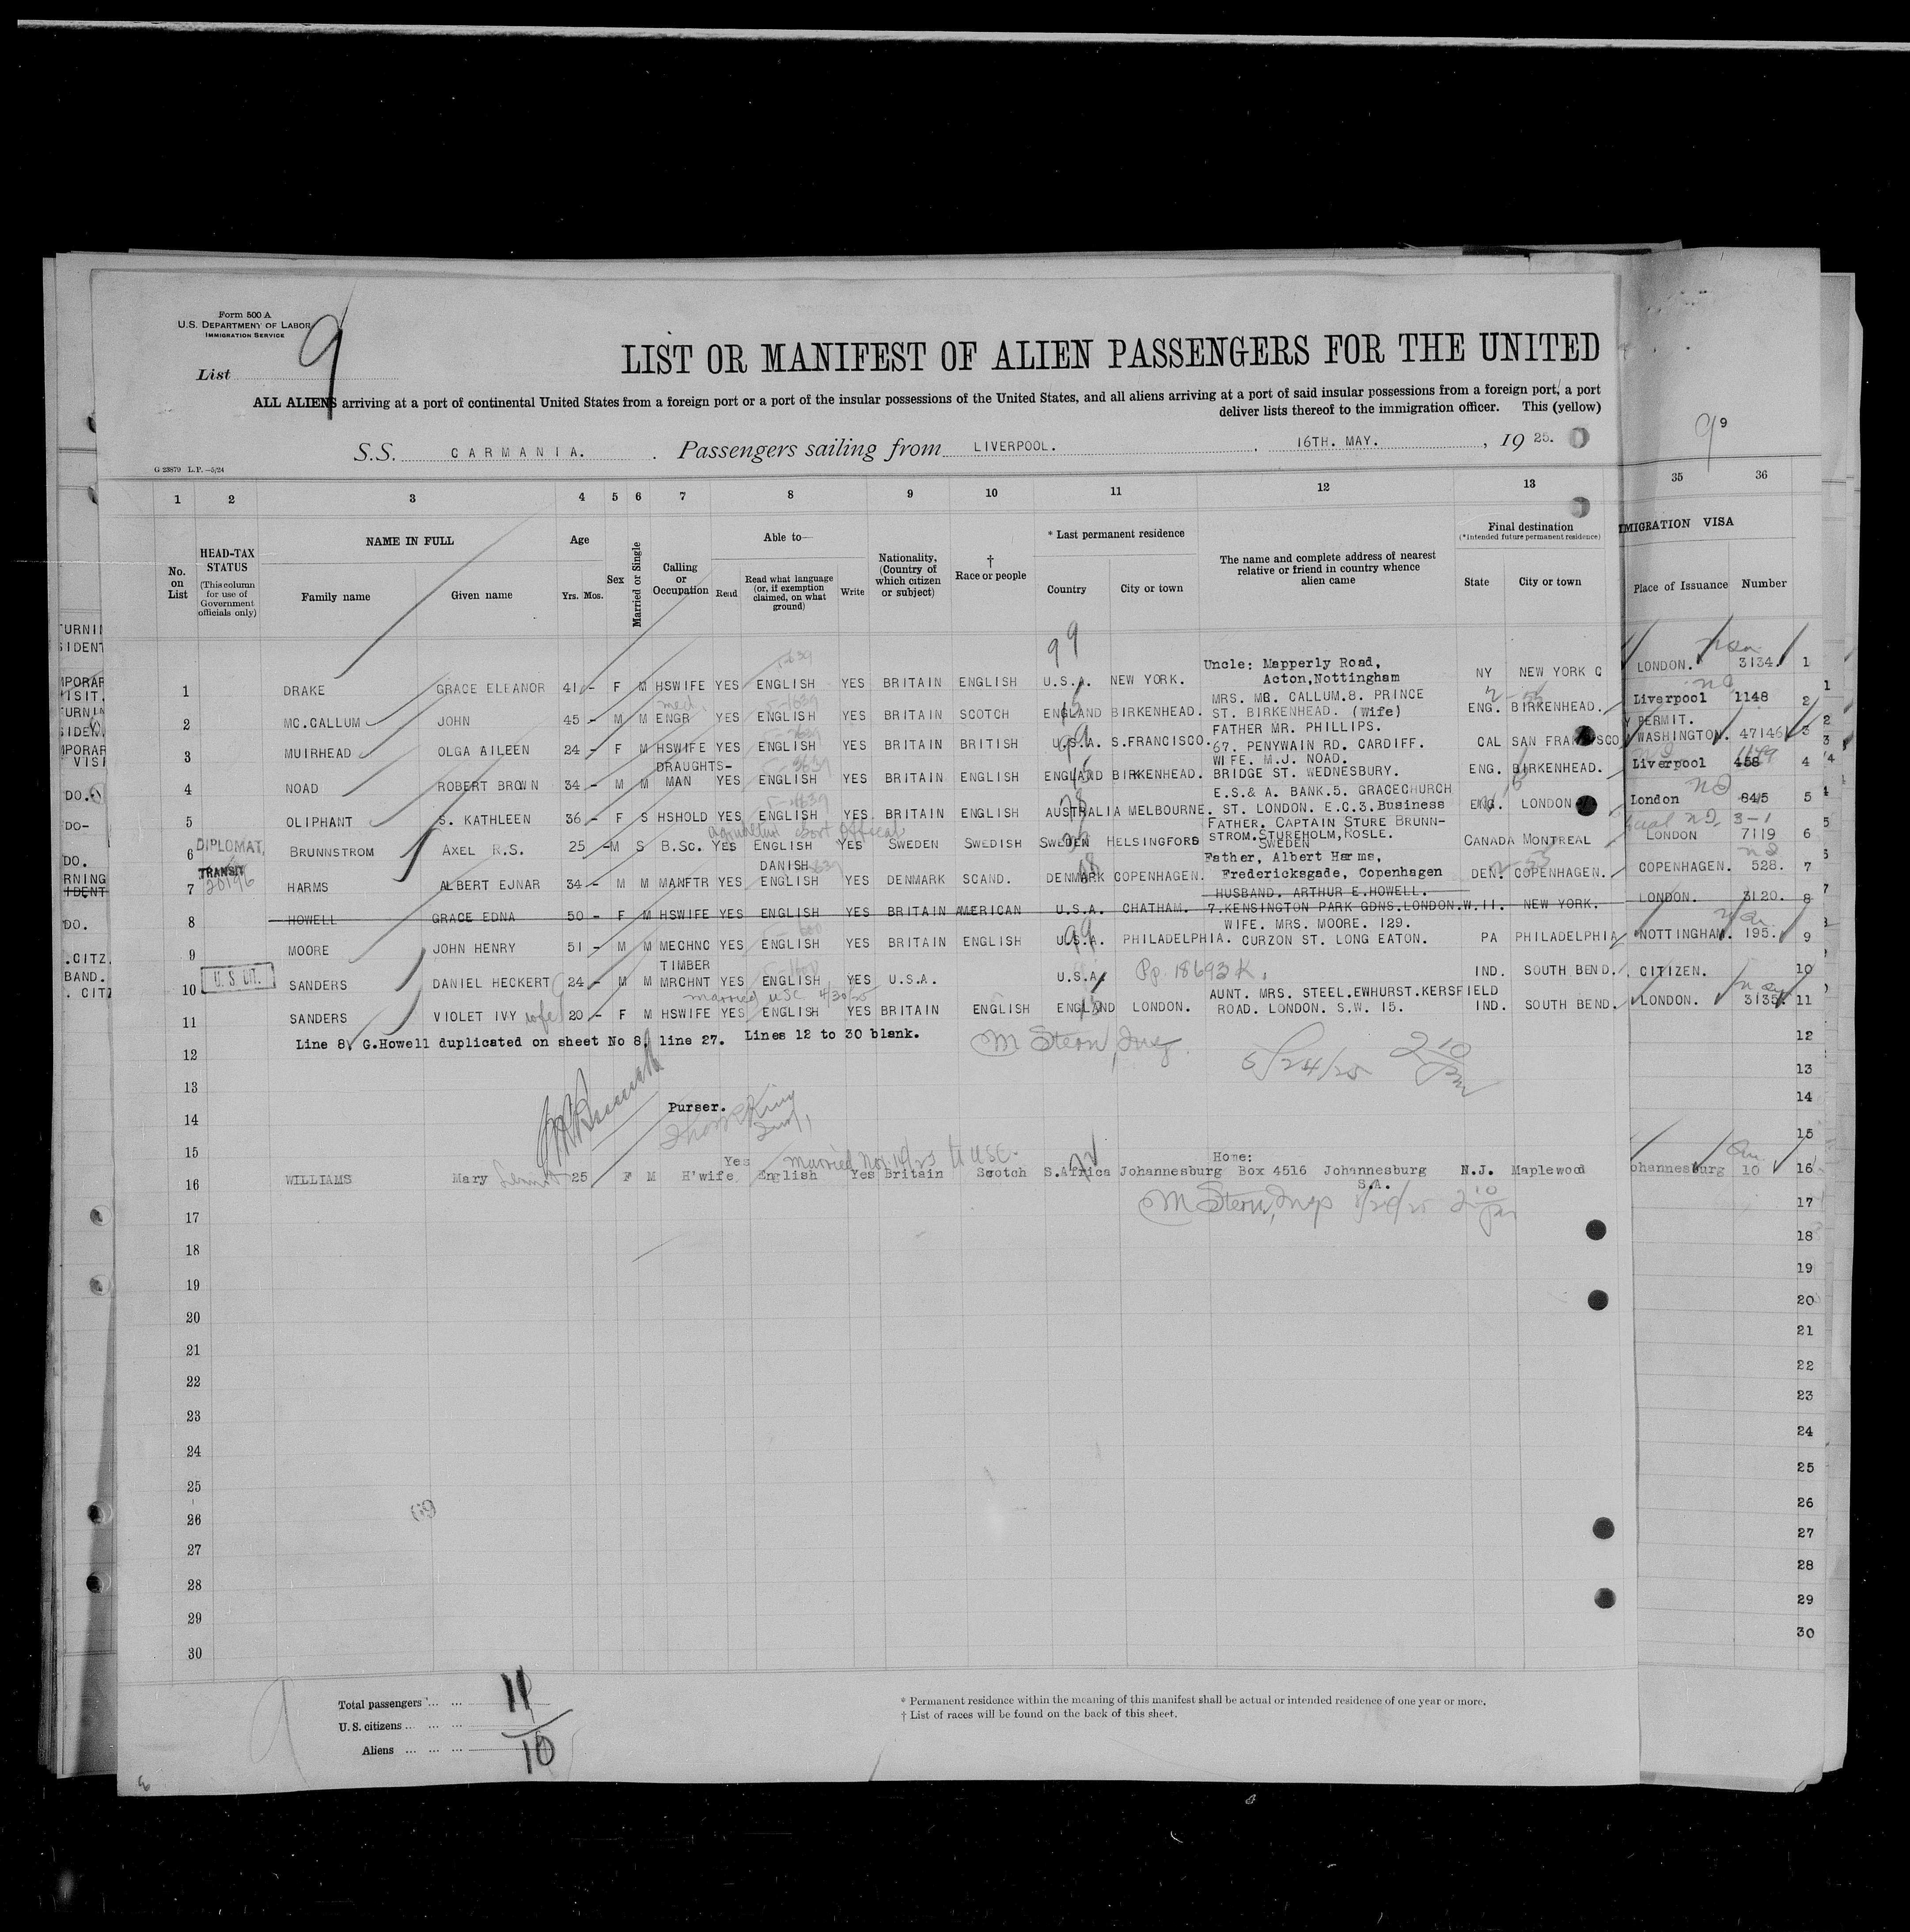 Form 500 A
U.S. DEPARTMENT OF LABOR
IMMIGRATION SERVICE
9
List
LIST OR MANIFEST OF ALIEN PASSENGERS FOR THE UNITED
ALL ALIENS arriving at a port of continental United States from a foreign port or a port of the insular possessions of the United States, and all aliens arriving at a port of said insular possessions from a foreign port, a port
deliver lists thereof to the immigration officer. This (yellow)
9 9
S.S. CARMANIA. Passengers sailing from LIVERPOOL. , 16TH. MAY. , 19 25.
G 23879 L.P.—5/24
1 2 3 4 5 6 7 8 9 10 11 12 13 35 36
No. on List
HEAD-TAX STATUS (This column for use of Government officials only)
NAME IN FULL
Family name Given name
Age Yrs. Mos.
Sex
Married or Single
Calling or Occupation
Able to—
Read Read what language (or, if exemption claimed, on what ground) Write
Nationality, (Country of which citizen or subject)
† Race or people
* Last permanent residence
Country City or town
The name and complete address of nearest relative or friend in country whence alien came
Final destination (*Intended future permanent residence)
State City or town
MIGRATION VISA
Place of Issuance Number
99
Uncle: Mapperly Road,
1 DRAKE GRACE ELEANOR 41 - F M HSWIFE YES ENGLISH YES BRITAIN ENGLISH U.S.A. NEW YORK. Acton,Nottingham NY NEW YORK C LONDON. 3134. 1
MRS. MC. CALLUM.8. PRINCE
2 MC.CALLUM JOHN 45 - M M ENGR YES ENGLISH YES BRITAIN SCOTCH ENGLAND BIRKENHEAD. ST. BIRKENHEAD. (Wife) ENG. BIRKENHEAD. Liverpool 1148 2
FATHER MR. PHILLIPS. PERMIT.
3 MUIRHEAD OLGA AILEEN 24 - F M HSWIFE YES ENGLISH YES BRITAIN BRITISH U.S.A. S.FRANCISCO. 67. PENYWAIN RD. CARDIFF. CAL SAN FRANCISCO WASHINGTON. 47146 3
DRAUGHTS- WIFE. M.J. NOAD. 1149
4 NOAD ROBERT BROWN 34 - M M MAN YES ENGLISH YES BRITAIN ENGLISH ENGLAND BIRKENHEAD. BRIDGE ST. WEDNESBURY. ENG. BIRKENHEAD. Liverpool 458 4
E.S.& A. BANK.5. GRACECHURCH
5 OLIPHANT S. KATHLEEN 36 - F S HSHOLD YES ENGLISH YES BRITAIN ENGLISH AUSTRALIA MELBOURNE. ST. LONDON. E.C.3.Business ENG. LONDON London 845 5
DIPLOMAT. FATHER. CAPTAIN STURE BRUNN- 3-1
6 BRUNNSTROM AXEL R.S. 25 - M S B.Sc. YES ENGLISH YES SWEDEN SWEDISH SWEDEN HELSINGFORS STROM.STUREHOLM,ROSLE. SWEDEN CANADA MONTREAL LONDON 7119 6
TRANSIT 20196 DANISH Father, Albert Harms,
7 HARMS ALBERT EJNAR 34 - M M MANFTR YES ENGLISH YES DENMARK SCAND. DENMARK COPENHAGEN. Fredericksgade, Copenhagen DEN. COPENHAGEN. COPENHAGEN. 528. 7
HUSBAND. ARTHUR E.HOWELL.
8 HOWELL GRACE EDNA 50 - F M HSWIFE YES ENGLISH YES BRITAIN AMERICAN U.S.A. CHATHAM. 7.KENSINGTON PARK GDNS.LONDON.W.11. NEW YORK. LONDON. 3120. 8
WIFE. MRS. MOORE. 129.
9 MOORE JOHN HENRY 51 - M M MECHNC YES ENGLISH YES BRITAIN ENGLISH U.S.A. PHILADELPHIA. CURZON ST. LONG EATON. PA PHILADELPHIA NOTTINGHAM. 195. 9
TIMBER
10 U. S. CIT. SANDERS DANIEL HECKERT 24 - M M MRCHNT YES ENGLISH YES U.S.A. U.S.A. Pp. 18693 K. IND. SOUTH BEND. CITIZEN. 10
married USC 4/30/25 AUNT. MRS. STEEL.EWHURST.KERSFIELD
11 SANDERS VIOLET IVY wife 20 - F M HSWIFE YES ENGLISH YES BRITAIN ENGLISH ENGLAND LONDON. ROAD. LONDON. S.W. 15. IND. SOUTH BEND. LONDON. 3135 11
Line 8, G.Howell duplicated on sheet No 8, line 27. Lines 12 to 30 blank.
M Stern, Insp.
5/24/25 2 10 pm
12 12
13 13
Purser.
14 14
15 15
Yes married Nov. to USC. Home:
16 WILLIAMS Mary 25 F M H'wife English Yes Britain Scotch S.Africa Johannesburg Box 4516 Johannesburg S.A. N.J. Maplewood ohannesburg 10 16
M Stern, Insp 5/24/25 2 10 pm
17 17
18 18
19 19
20 20
21 21
22 22
23 23
24 24
25 25
26 26
27 27
28 28
29 29
30 30
Total passengers 11
U. S. citizens
Aliens 10
* Permanent residence within the meaning of this manifest shall be actual or intended residence of one year or more.
† List of races will be found on the back of this sheet.